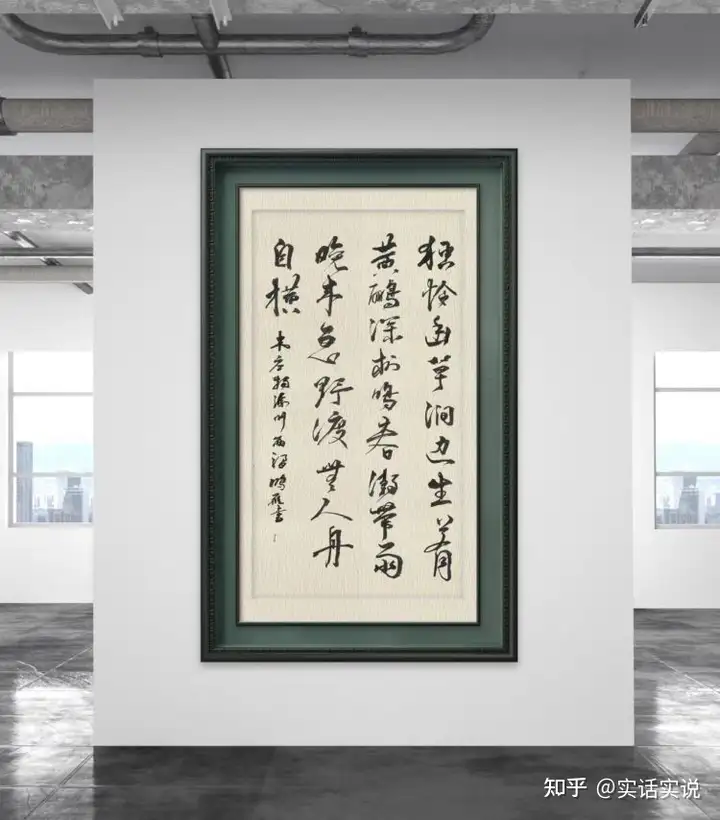 独怜幽草涧边生上有
黄鹂深树鸣春潮带雨
晚来急野渡無人舟
自横
韦应物滁州西涧
知乎 @实话实说